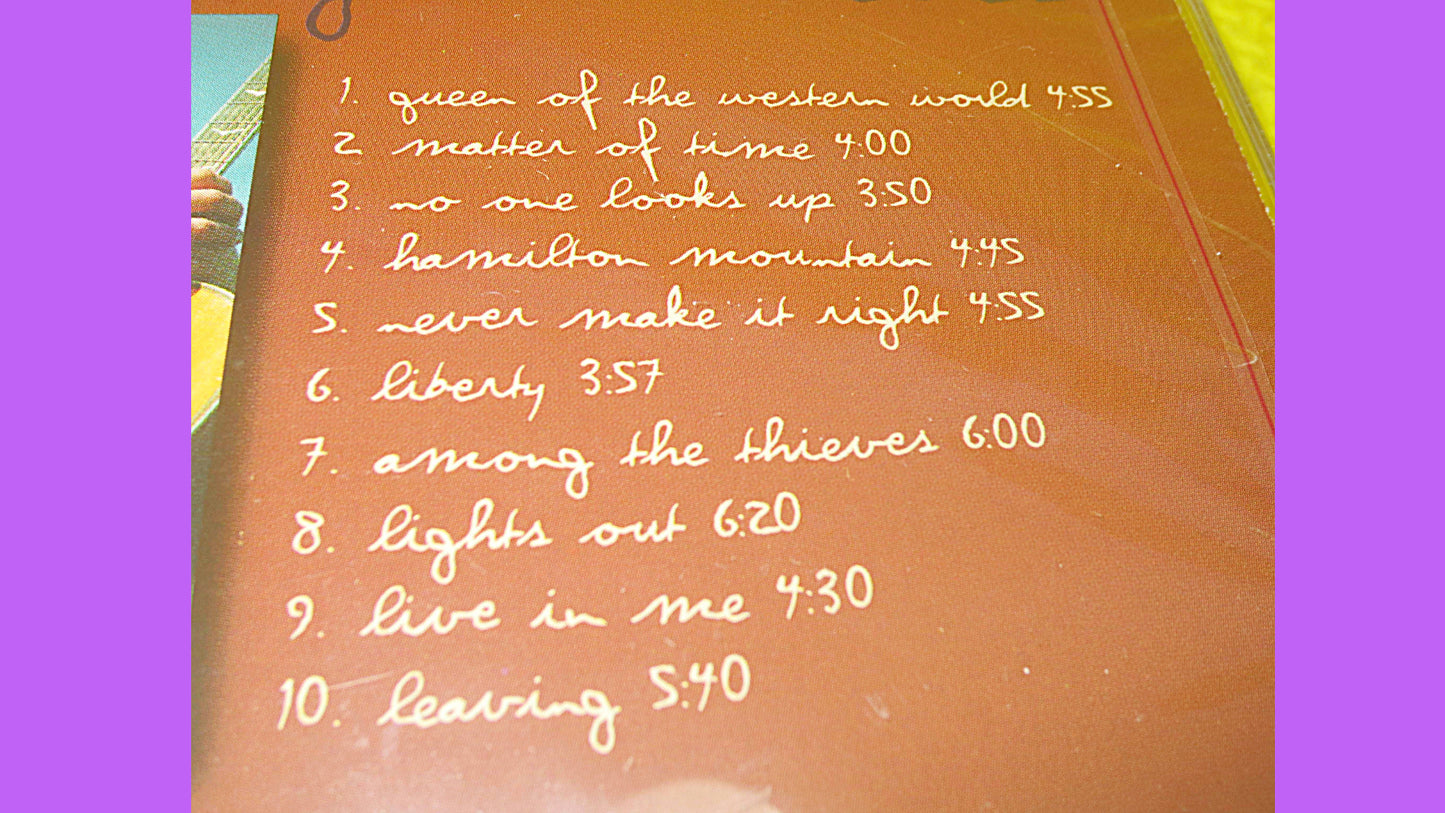 1. queen of the western world 4:55
2 matter of time 4:00
3. no one looks up 3:50
4. hamilton mountain 4:45
5. never make it right 4:55
6. liberty 3:57
7. among the thieves 6:00
8. lights out 6:20
9. live in me 4:30
10. leaving 5:40